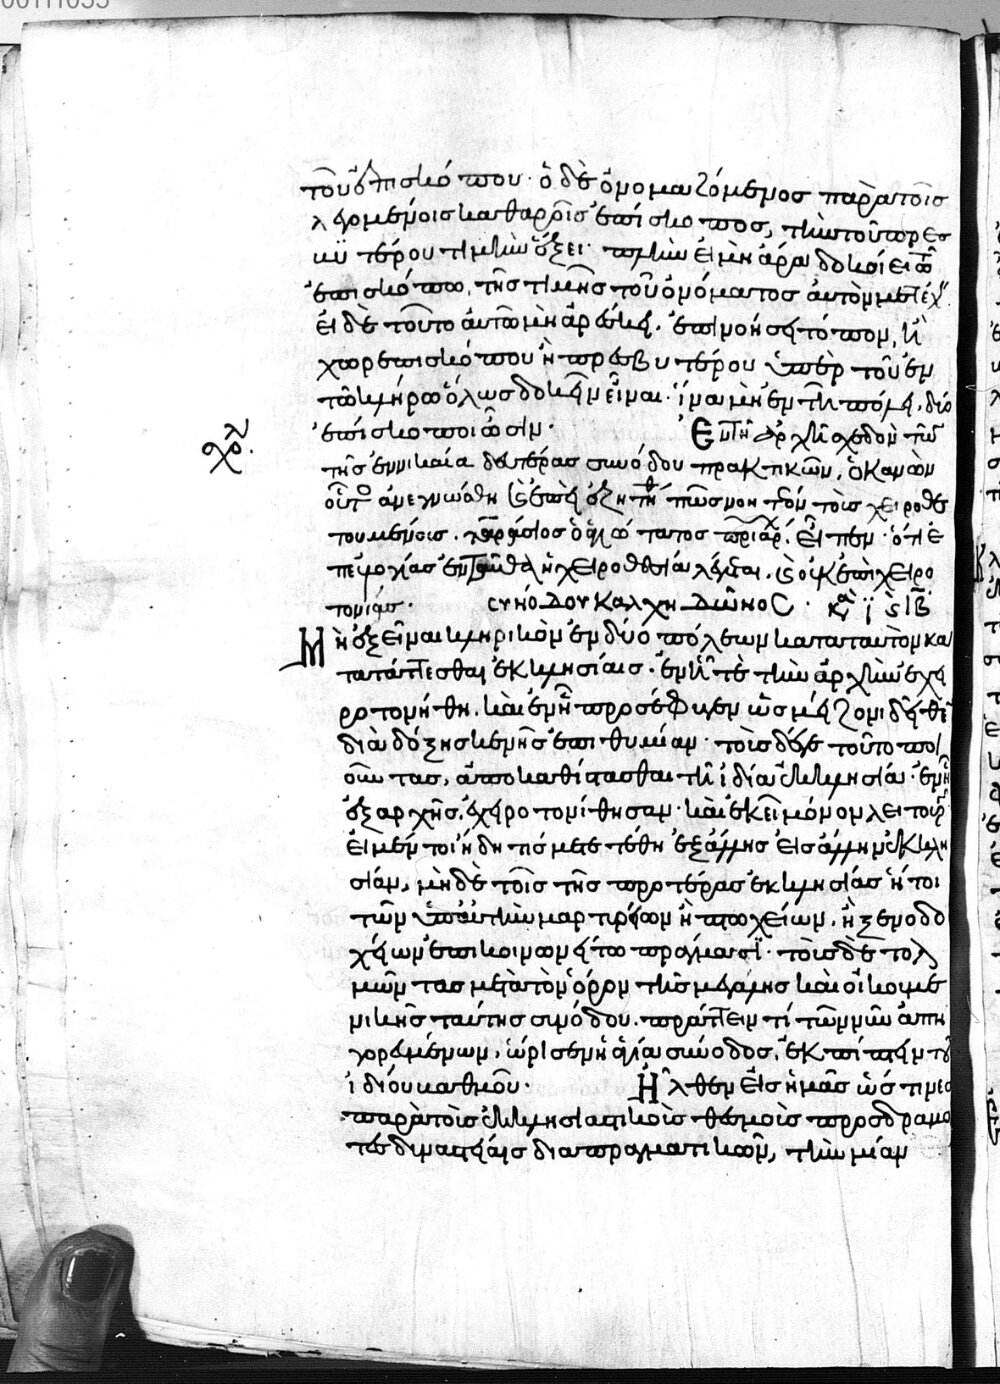 00111035
τοῦ ἐπισκόπου· ὁ δὲ ὀνομαζόμενος παρὰ τοῖς
λεγομένοις καθαροῖς ἐπίσκοπος, τὴν τοῦ πρεσ
βυτέρου τιμὴν ἕξει· πλὴν εἰ μὴ ἄρα δοκοίει τῶ
ἐπισκόπω, τῆς τιμῆς τοῦ ὀνόματος αὐτὸν μετέχ
εἰ δὲ τοῦτο αὐτῶ μὴ ἀρέσκει, ἐπινοήσει τόπον, ἢ
χωρεπισκόπου ἢ πρεσβυτέρου ὑπὲρ τοῦ ἐν
τῶ κλήρω ὅλως δοκεῖν εἶναι· ἵνα μὴ ἐν τῆ πόλει, δύο
ἐπίσκοποι ὦσιν· Ἐν τῆ ἀρχῆ σχεδὸν τῶν
σχόλ
τῆς ἐν νικαία δευτέρας συνόδου πρακτικῶν, ὁ κανὼν
οὗτος ἀνεγνώσθη καὶ ἐπεὶ ἐζητήθη πῶς νοητέον τὸ τοὺς χειροθε
τουμένους, ταράσιος ὁ ἁγιώτατος πατριάρχης, εἶπεν· ὅτι ἐ
π' εὐλογίας ἐνταῦθα ἡ χειροθεσία λέγεται, καὶ οὐκ ἐπὶ χειρο
τονίας· συνόδου καλχηδῶνος· κανὼν ι καὶ ιβ
Μὴ ἐξεῖναι κληρικὸν ἐν δύο πόλεων κατὰ ταυτὸν κα
τατάττεσθαι ἐκκλησίαις· ἐν ἧ τε τὴν ἀρχὴν ἐχει
ροτονήθη, καὶ ἐν ἧ προσέφυγεν ὡς μείζονι δῆθεν
διὰ δόξης κενῆς ἐπιθυμίαν· τοὺς δέ γε τοῦτο ποι
οῦντας, ἀποκαθίστασθαι τῆ ἰδία ἐκκλησία· ἐν ἧ
ἐξαρχῆς, ἐχειροτονήθησαν· καὶ ἐκεῖ μόνον λειτουργ
εἰ μέν τοι ἤδη τὶς μετετέθη ἐξ ἄλλης εἰς ἄλλην ἐκκλη
σίαν, μηδὲ τοῖς τῆς προτέρας ἐκκλησίας ἤτοι
τῶν ὑπ' αὐτὴν μαρτυρίων ἢ πτωχείων, ἢ ξενοδο
χείων ἐπικοινωνείτω πράγμασι· τοὺς δὲ τολ
μῶντας μετὰ τὸν ὅρον τῆς μεγάλης καὶ οἰκουμε
νικῆς ταύτης συνόδου, πράττειν τί τῶν νῦν ἀπη
γορευμένων, ὥρισεν ἡ ἁγία σύνοδος, ἐκπίπτειν τοῦ
ἰδίου βαθμοῦ· Ἦλθεν εἰς ἡμᾶς ὥς τινες
παρὰ τοὺς ἐκκλησιαστικοὺς θεσμοὺς προσδραμόν
τες δυναστείαις διὰ πραγματικῶν, τὴν μίαν